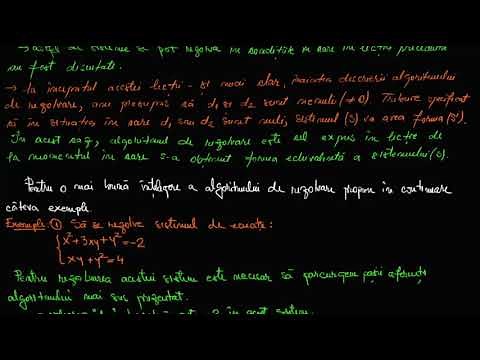 → astfel de sisteme se pot rezolva în condițiile în care în lecția precedentă
au fost discutate.
→ la începutul acestei lecții - și mai clar, înaintea descrierii algoritmului
de rezolvare, am presupus că d₁ și d₂ sunt nenule (≠0). Trebuie specificat
că în situația în care d₁ sau d₂ sunt nule, sistemul (S) va avea forma (S').
În acest caz, algoritmul de rezolvare este cel expus în lecție de
la momentul în care s-a obținut forma echivalentă a sistemului (S).
Pentru o mai bună înțelegere a algoritmului de rezolvare propun în continuare
câteva exemple.
Exemple: ① Să se rezolve sistemul de ecuații:
{x²+3xy+y²=-2
xy+y²=4
Pentru rezolvarea acestui sistem este necesar să parcurgem pașii aferenți
algoritmului mai sus prezentat.
în acest sistem.